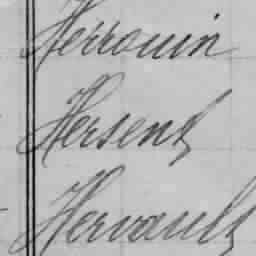 Herrouin
Hersent
Hervault